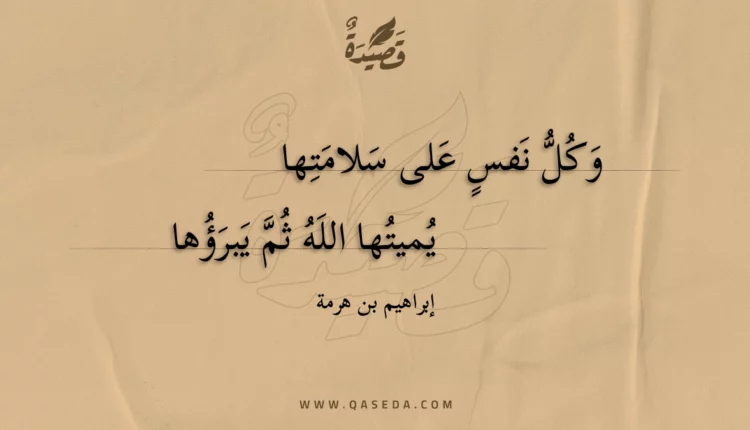 قَصِيْدَةٌ
وَكُلُّ نَفسٍ عَلى سَلامَتِها
يُميتُها اللَهُ ثُمَّ يَبرَؤُها
إبراهيم بن هرمة
WWW.QASEDA.COM